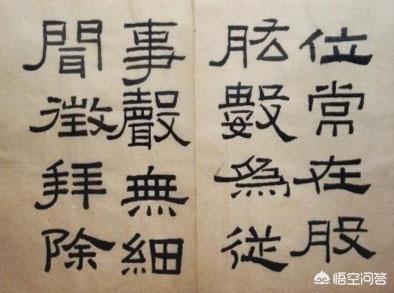 位常在股
肱數為從
事聲無細
聞徵拜除
悟空问答